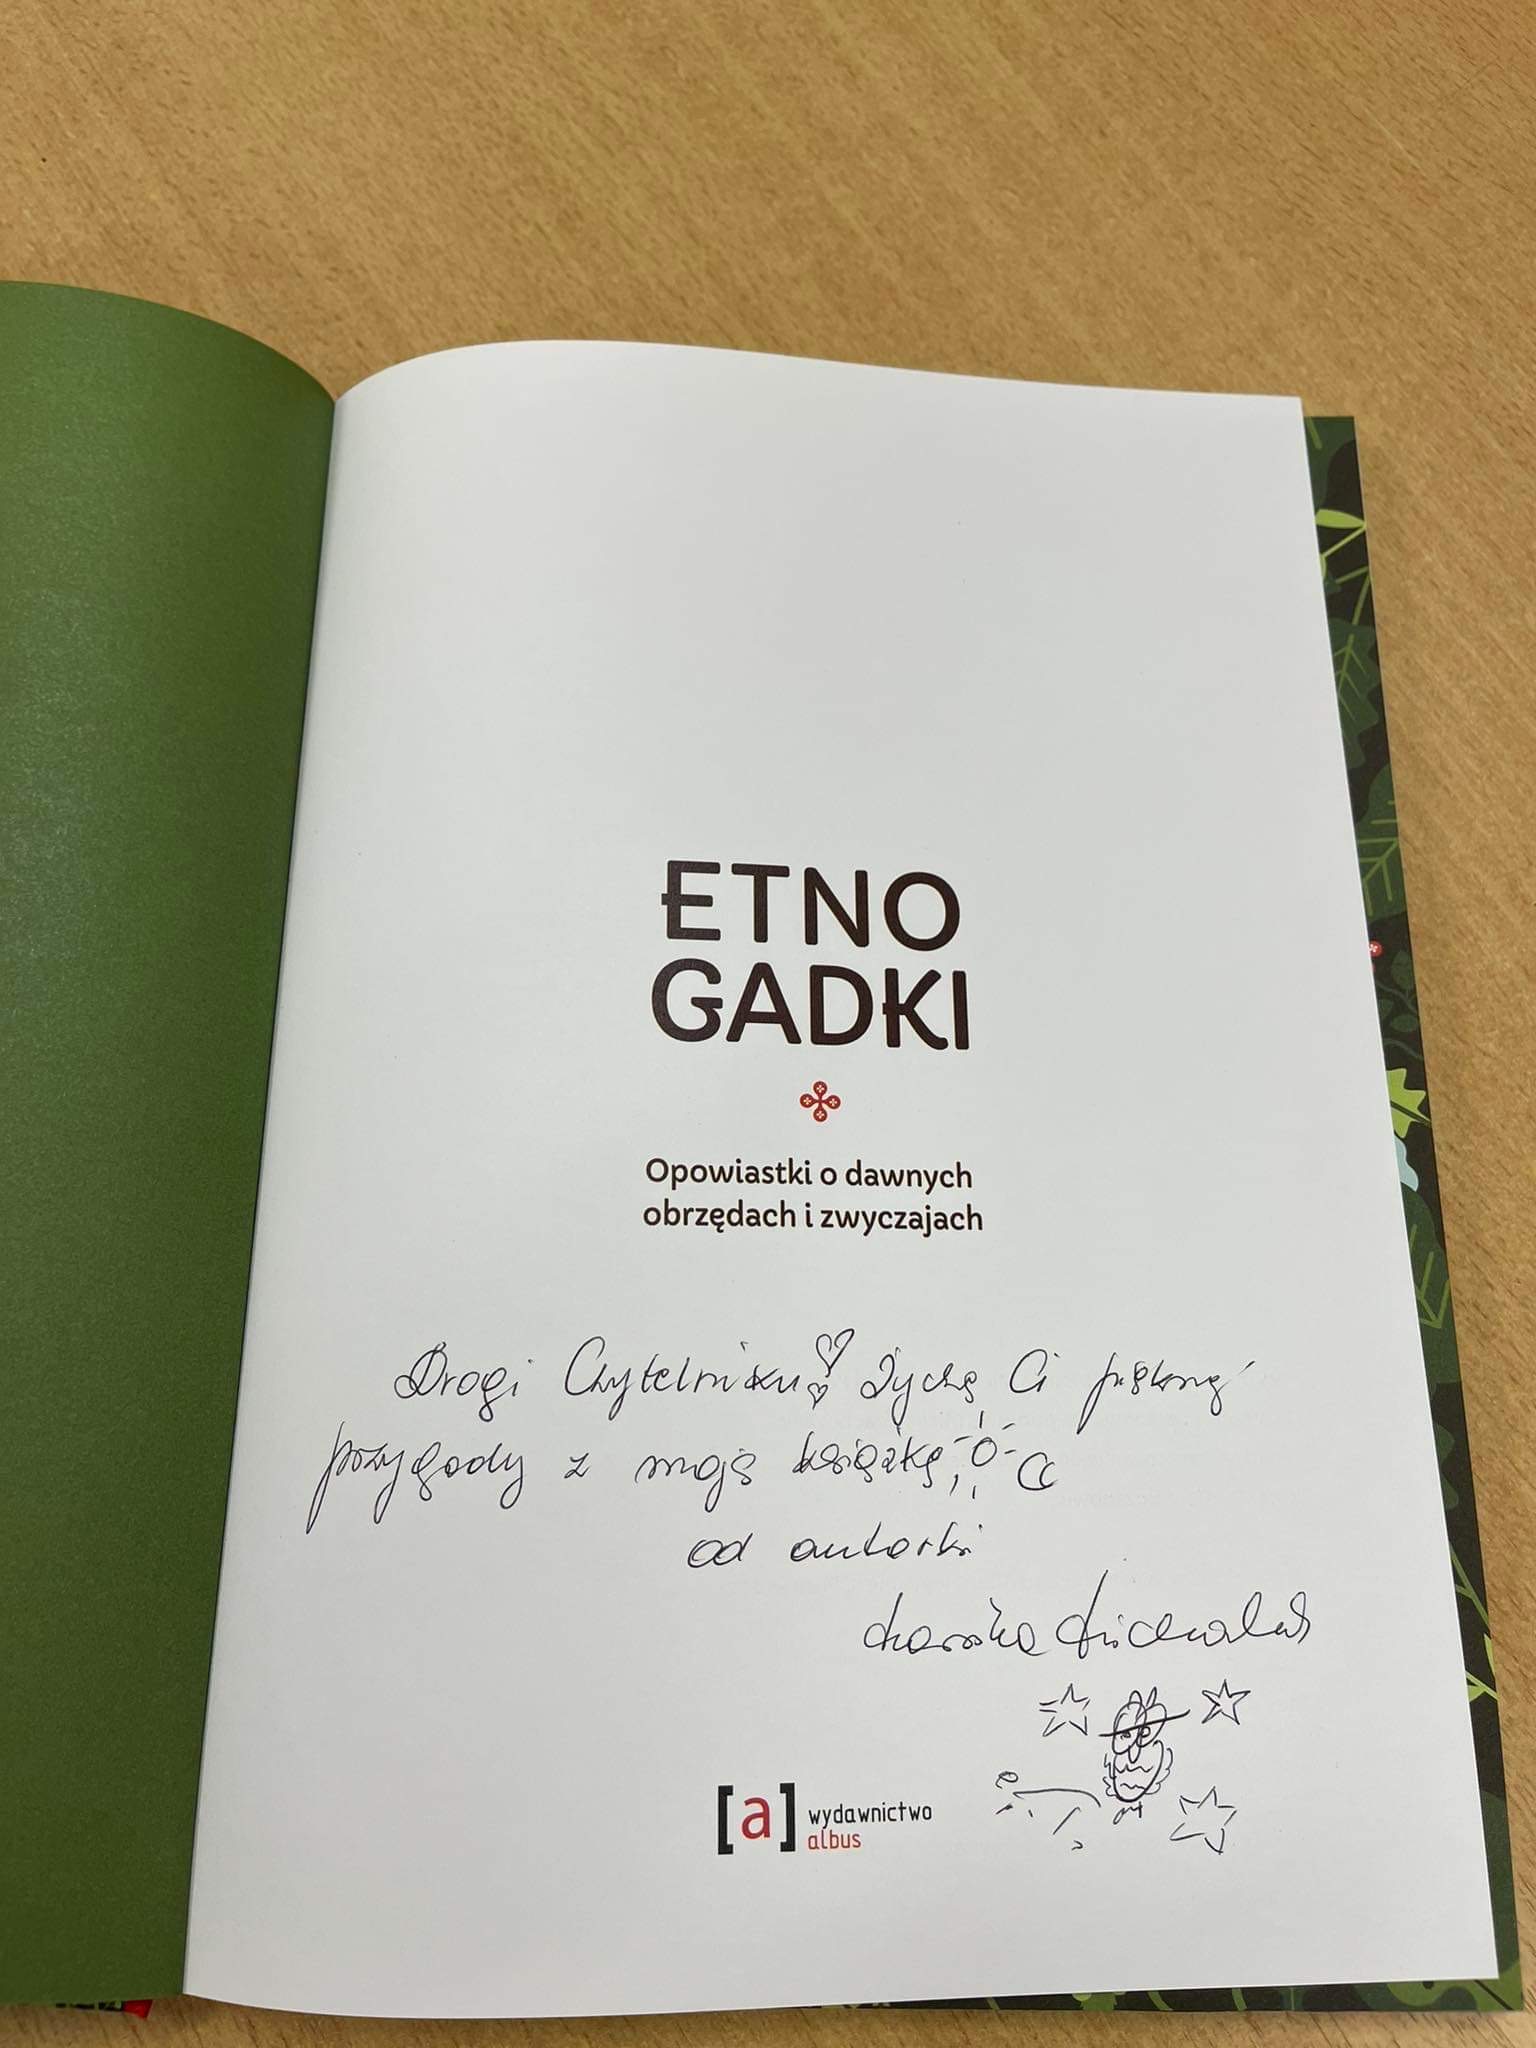 ETNO
GADKI
Opowiastki o dawnych
obrzędach i zwyczajach
Drogi Czytelniku! Życzę Ci pięknej
przygody z moją książką
od autorki
[a] wydawnictwo
albus